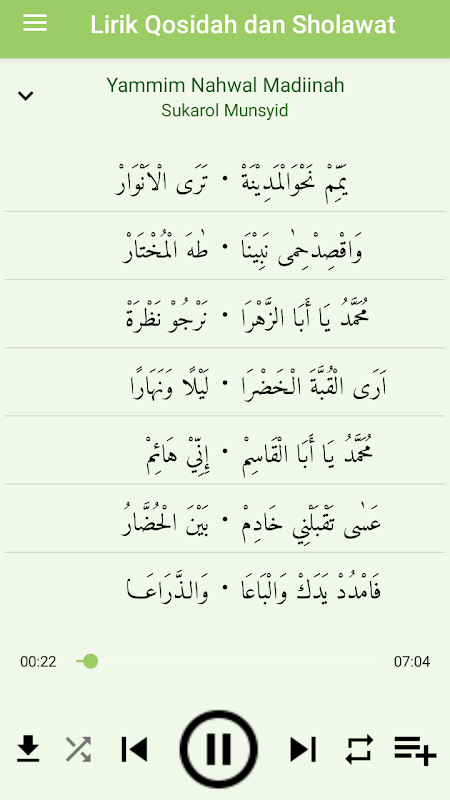 Lirik Qosidah dan Sholawat
Yammim Nahwal Madiinah
Sukarol Munsyid
يَمِّمْ نَحْوَالْمَدِيْنَةْ • تَرَى الْاَنْوَارْ
وَاقْصِدْحِمٰى نَبِيْنَا • طٰهَ الْمُخْتَارْ
مُحَمَّدُ يَا أَبَا الزَّهْرَا • نَرْجُوْ نَظْرَةْ
اَرَى الْقُبَّةَ الْخَضْرَا • لَيْلًا وَنَهَارًا
مُحَمَّدُ يَا أَبَا الْقَاسِمْ • إِنِّيْ هَائِمْ
عَسٰى تَقْبَلْنِي خَادِمْ • بَيْنَ الْحُضَّارُ
فَامْدُدْ يَدَكْ وَالْبَاعَا • وَالذَّرَاعَا
00:22 07:04